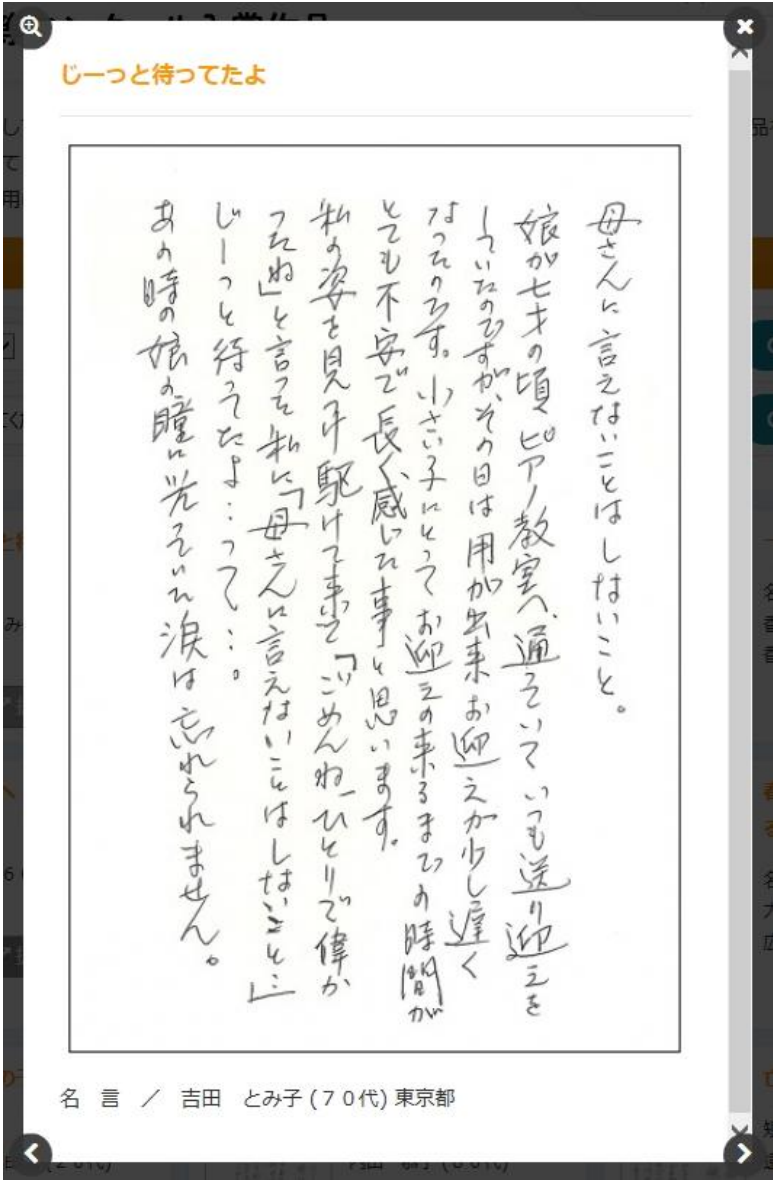 じーっと待ってたよ
母さんに言えないことはしないこと。
娘が七才の頃、ピアノ教室へ通っていていつも送り迎えを
していたのですが、その日は用が出来お迎えが少し遅く
なったのです。小さい子にとってお迎えの来るまでの時間が
とても不安で長く感じた事と思います。
私の姿を見つけ駆けて来て「ごめんね、ひとりで偉か
ったね」と言って私に「母さんに言えないことはしないこと…」
じーっと待ってたよ…って…。
あの時の娘の瞳に光っていた涙は忘れられません。
名 言 ／ 吉田 とみ子 (７０代) 東京都